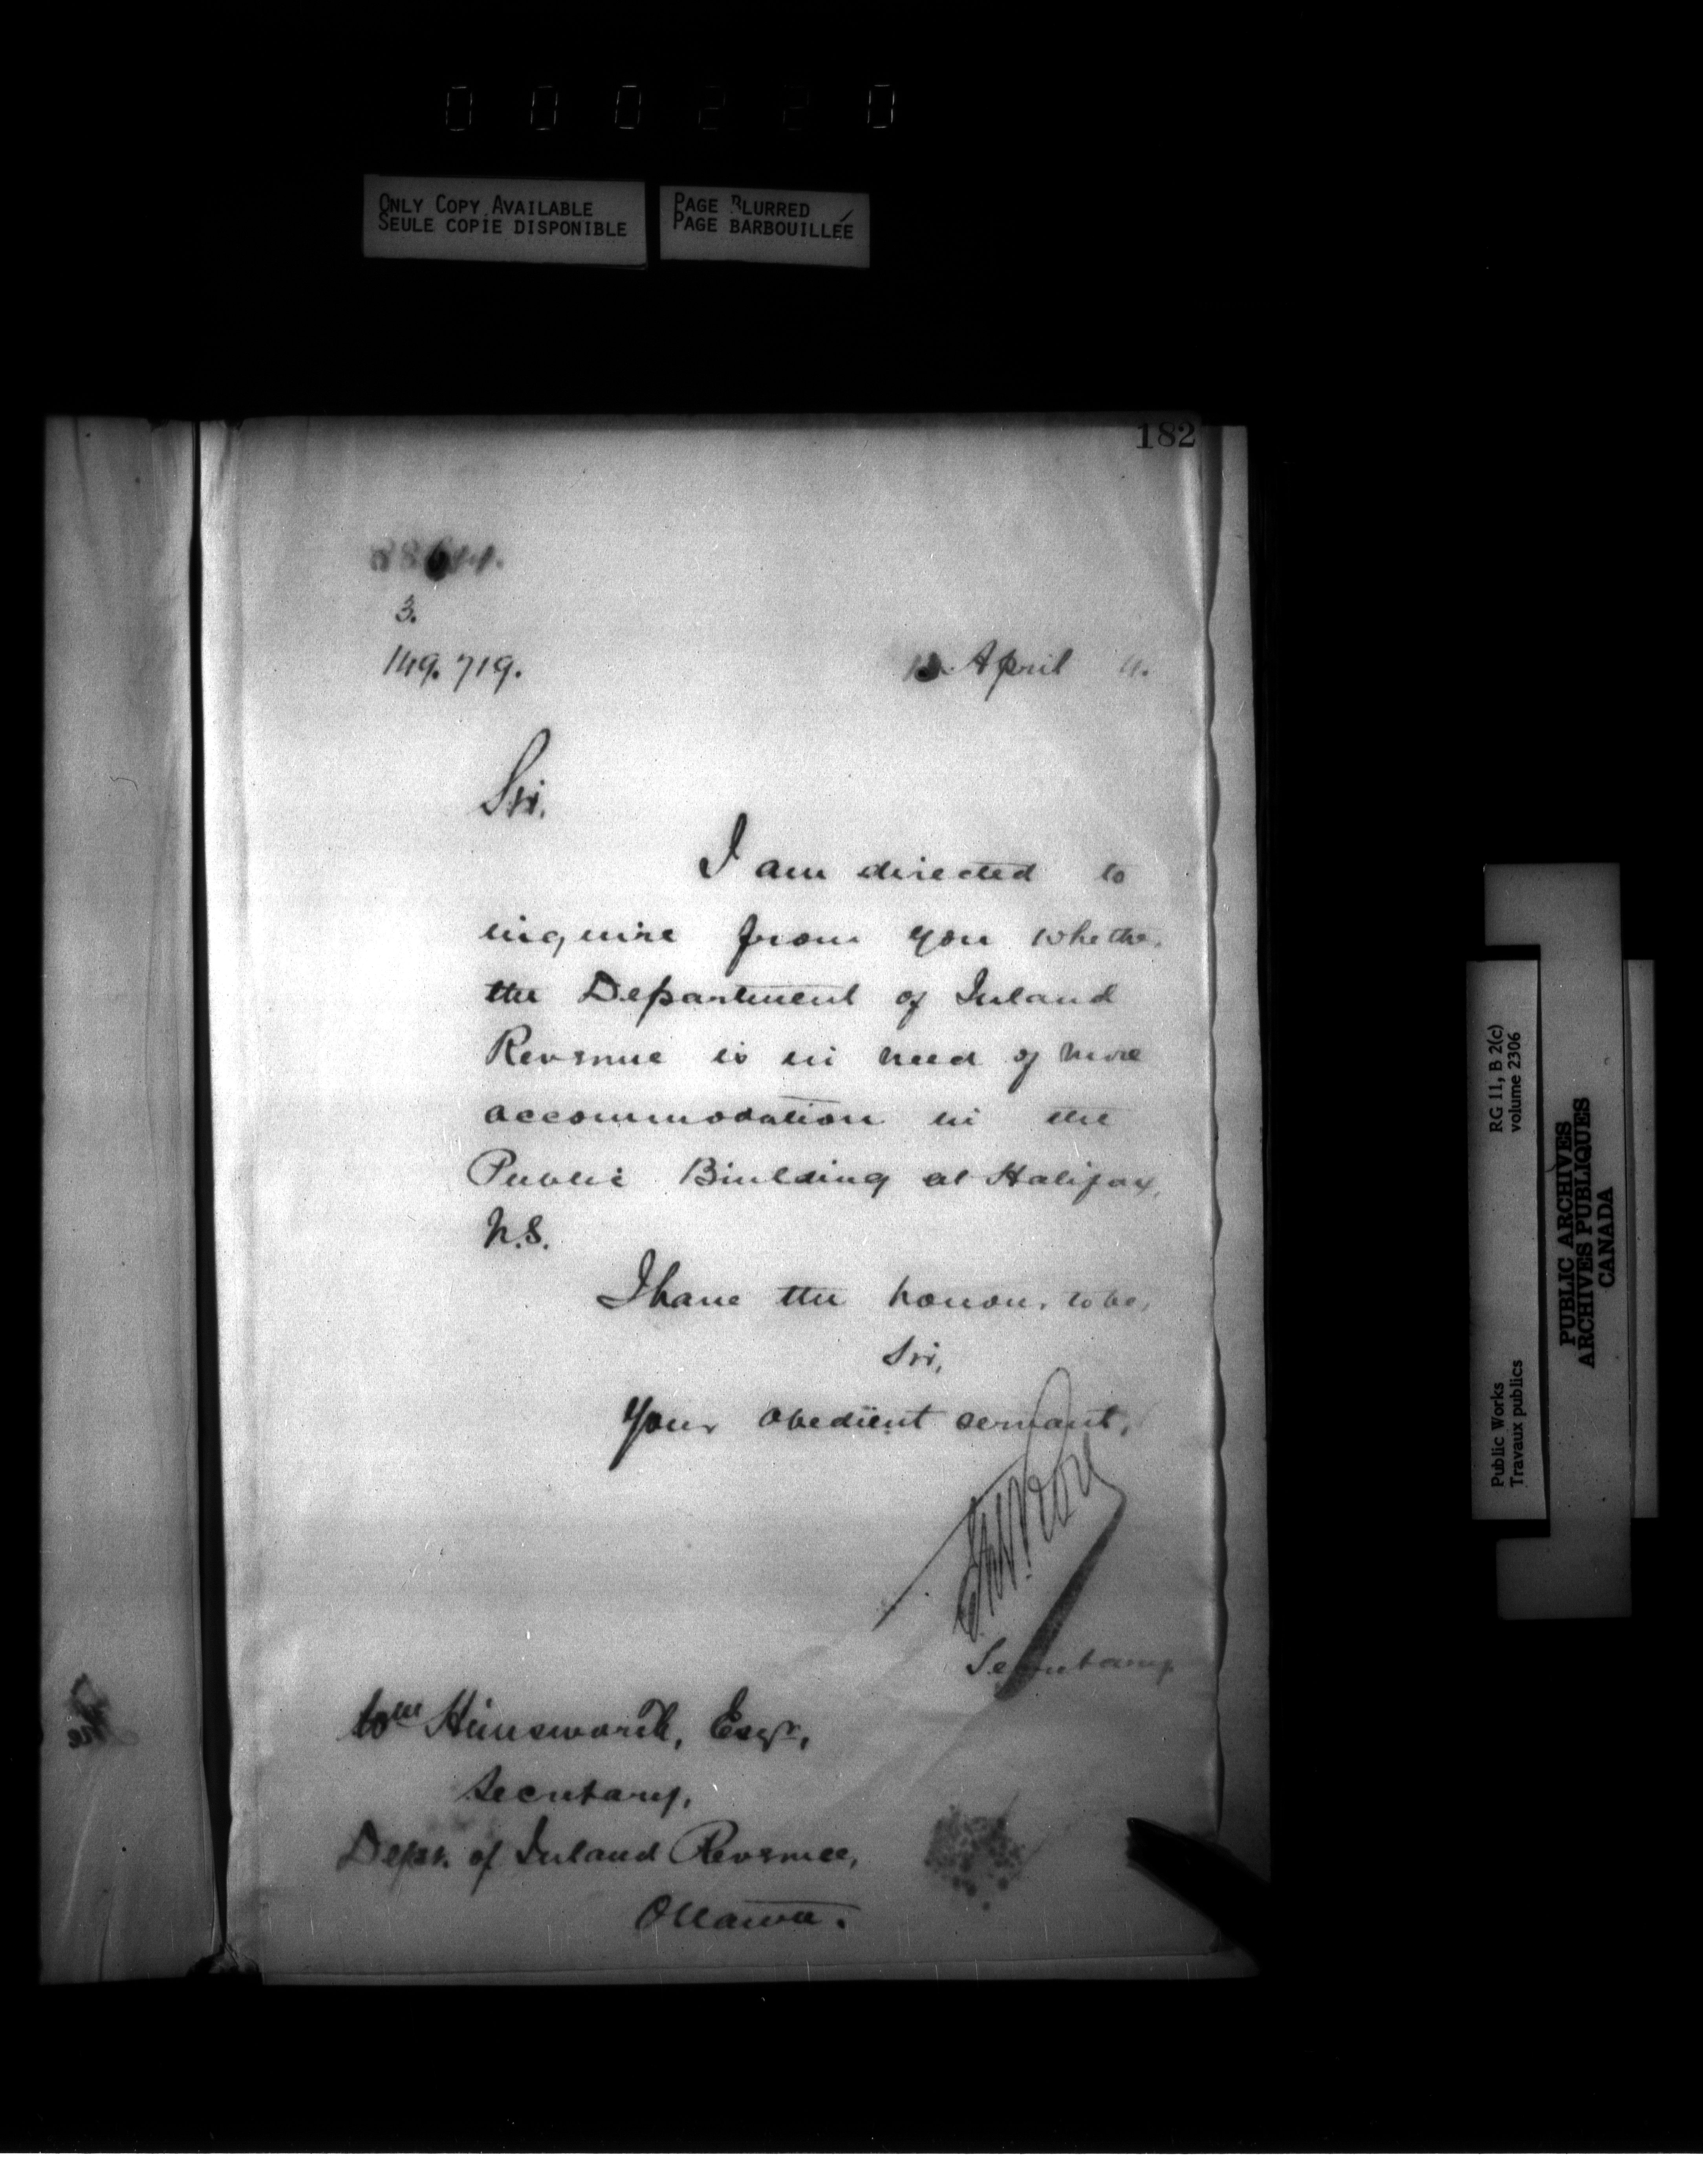 000220
ONLY COPY AVAILABLE
SEULE COPIE DISPONIBLE
PAGE BLURRED
PAGE BARBOUILLÉE
182
3.
149.719.
April
Sir,
I am directed to
inquire from you whether
the Department of Inland
Revenue is in need of more
accommodation in the
Public Building at Halifax,
N.S.
I have the honour to be,
Sir,
Your obedient servant,
Secretary
Wm Himsworth, Esqr.,
Secretary,
Dept. of Inland Revenue,
Ottawa.
RG 11, B 2(c)
volume 2306
Public Works
Travaux publics
PUBLIC ARCHIVES
ARCHIVES PUBLIQUES
CANADA